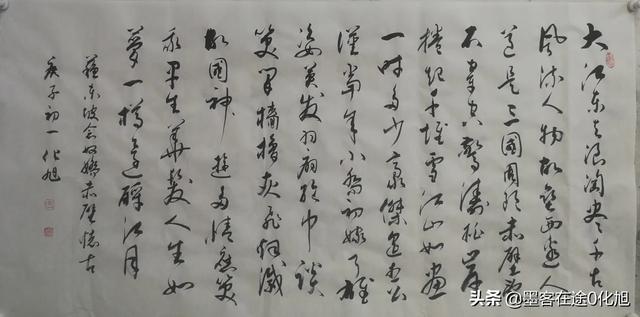 大江东去浪淘尽千古
风流人物故垒西邊人
道是三國周郎赤壁乱
石穿空驚濤拍岸
捲起千堆雪江山如畫
一时多少豪傑遥想公
瑾當年小喬初嫁了雄
姿英发羽扇纶巾談
笑间檣櫓灰飛烟滅
故國神遊多情應笑
我早生華髮人生如
夢一樽還酹江月
蘇东坡念奴嬌赤壁懷古
庚子初一化旭
头条 @墨客在途0化旭